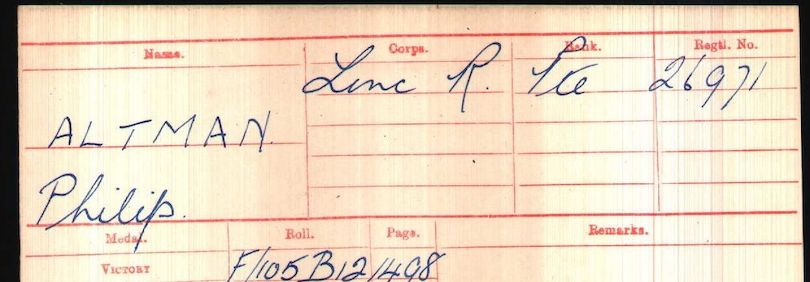 Name. Corps. Rank. Regtl. No.
Linc R. Pte 26971
ALTMAN.
Philip.
Medal. Roll. Page. Remarks.
VICTORY F/105B12 1498